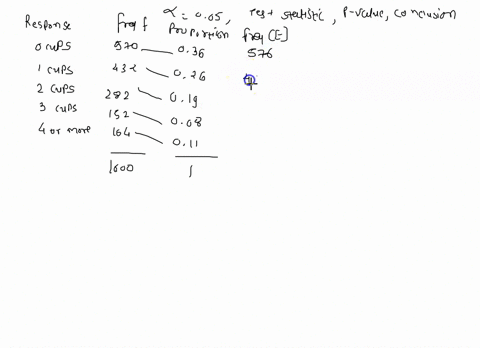 α = 0.05, test statistic, P-value, conclusion
Response freq f Proportion freq [E]
0 cups 570 0.36 576
1 cups 432 0.26
2 cups 282 0.19
3 cups 152 0.08
4 or more 164 0.11
1600 1